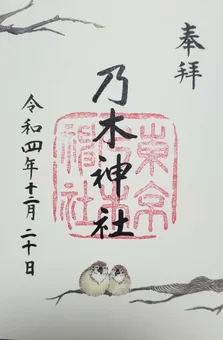 奉拝
乃木神社
東京乃木神社
令和四年十二月二十日